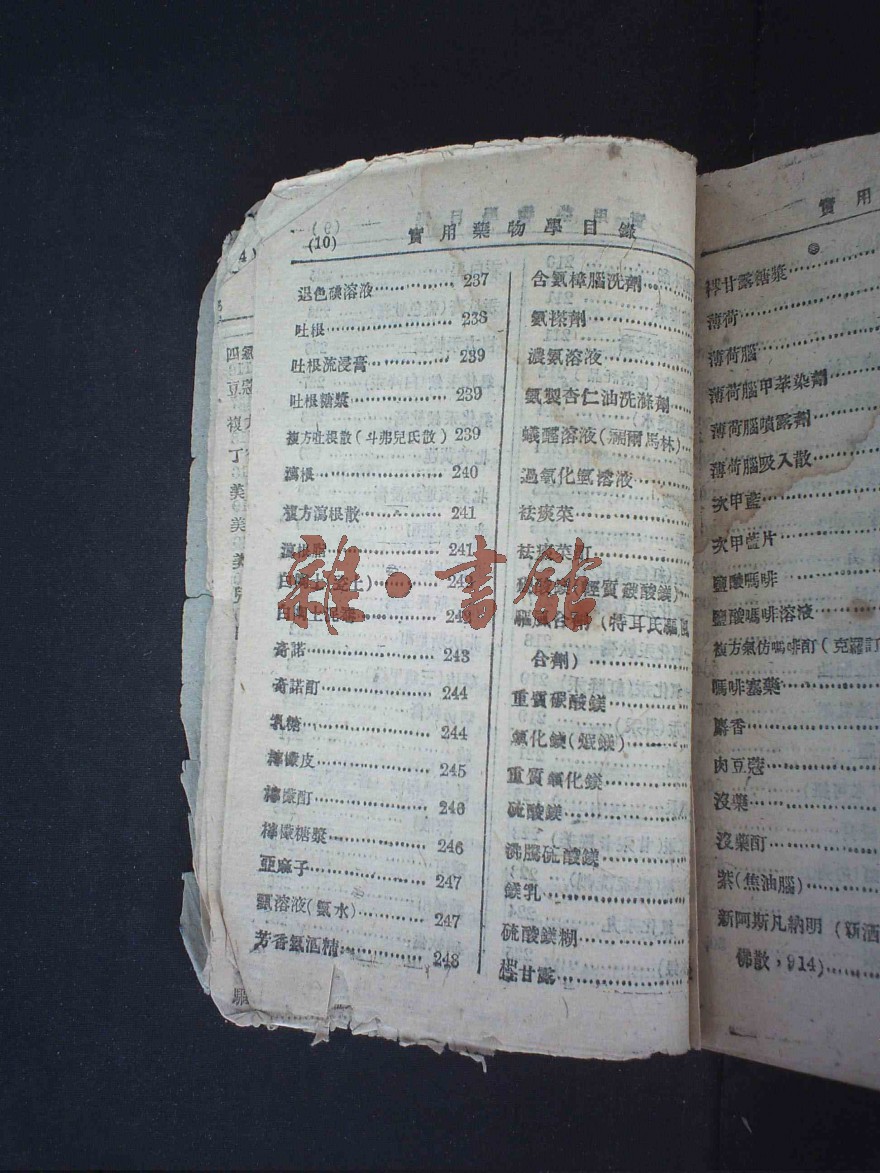 (10)
實用藥物學目錄
退色碘溶液 237
吐根 238
吐根流浸膏 239
吐根糖漿 239
複方吐根散(斗弗兒氏散) 239
瀉根 240
複方瀉根散 241
瀉根脂 241
白陶土 242
白陶土泥 242
奇諾 243
奇諾酊 244
乳糖 244
檸檬皮 245
檸檬酊 246
檸檬糖漿 246
亞麻子 247
氨溶液(氨水) 247
芳香氨酒精 248
含氨樟腦洗劑
氨搽劑
濃氨溶液
氨製杏仁油洗滌劑
蟻醛溶液(福爾馬林)
過氧化氫溶液
祛痰菜
祛痰菜酊
碳酸鎂(輕質碳酸鎂)
驅風合劑(特耳氏驅風
合劑)
重質碳酸鎂
氧化鎂(煅鎂)
重質氧化鎂
硫酸鎂
沸騰硫酸鎂
鎂乳
硫酸鎂糊
甘露
實用
甘露糖漿
薄荷
薄荷腦
薄荷腦甲苯染劑
薄荷腦噴霧劑
薄荷腦吸入散
次甲藍
次甲藍片
鹽酸嗎啡
鹽酸嗎啡溶液
複方氯仿嗎啡酊(克羅
嗎啡塞藥
麝香
肉豆蔻
沒藥
沒藥酊
萘(焦油腦)
新阿斯凡納明(新洒
佛散,914)
4)
四氯
豆蔻
複
丁
美
美
雜·書館